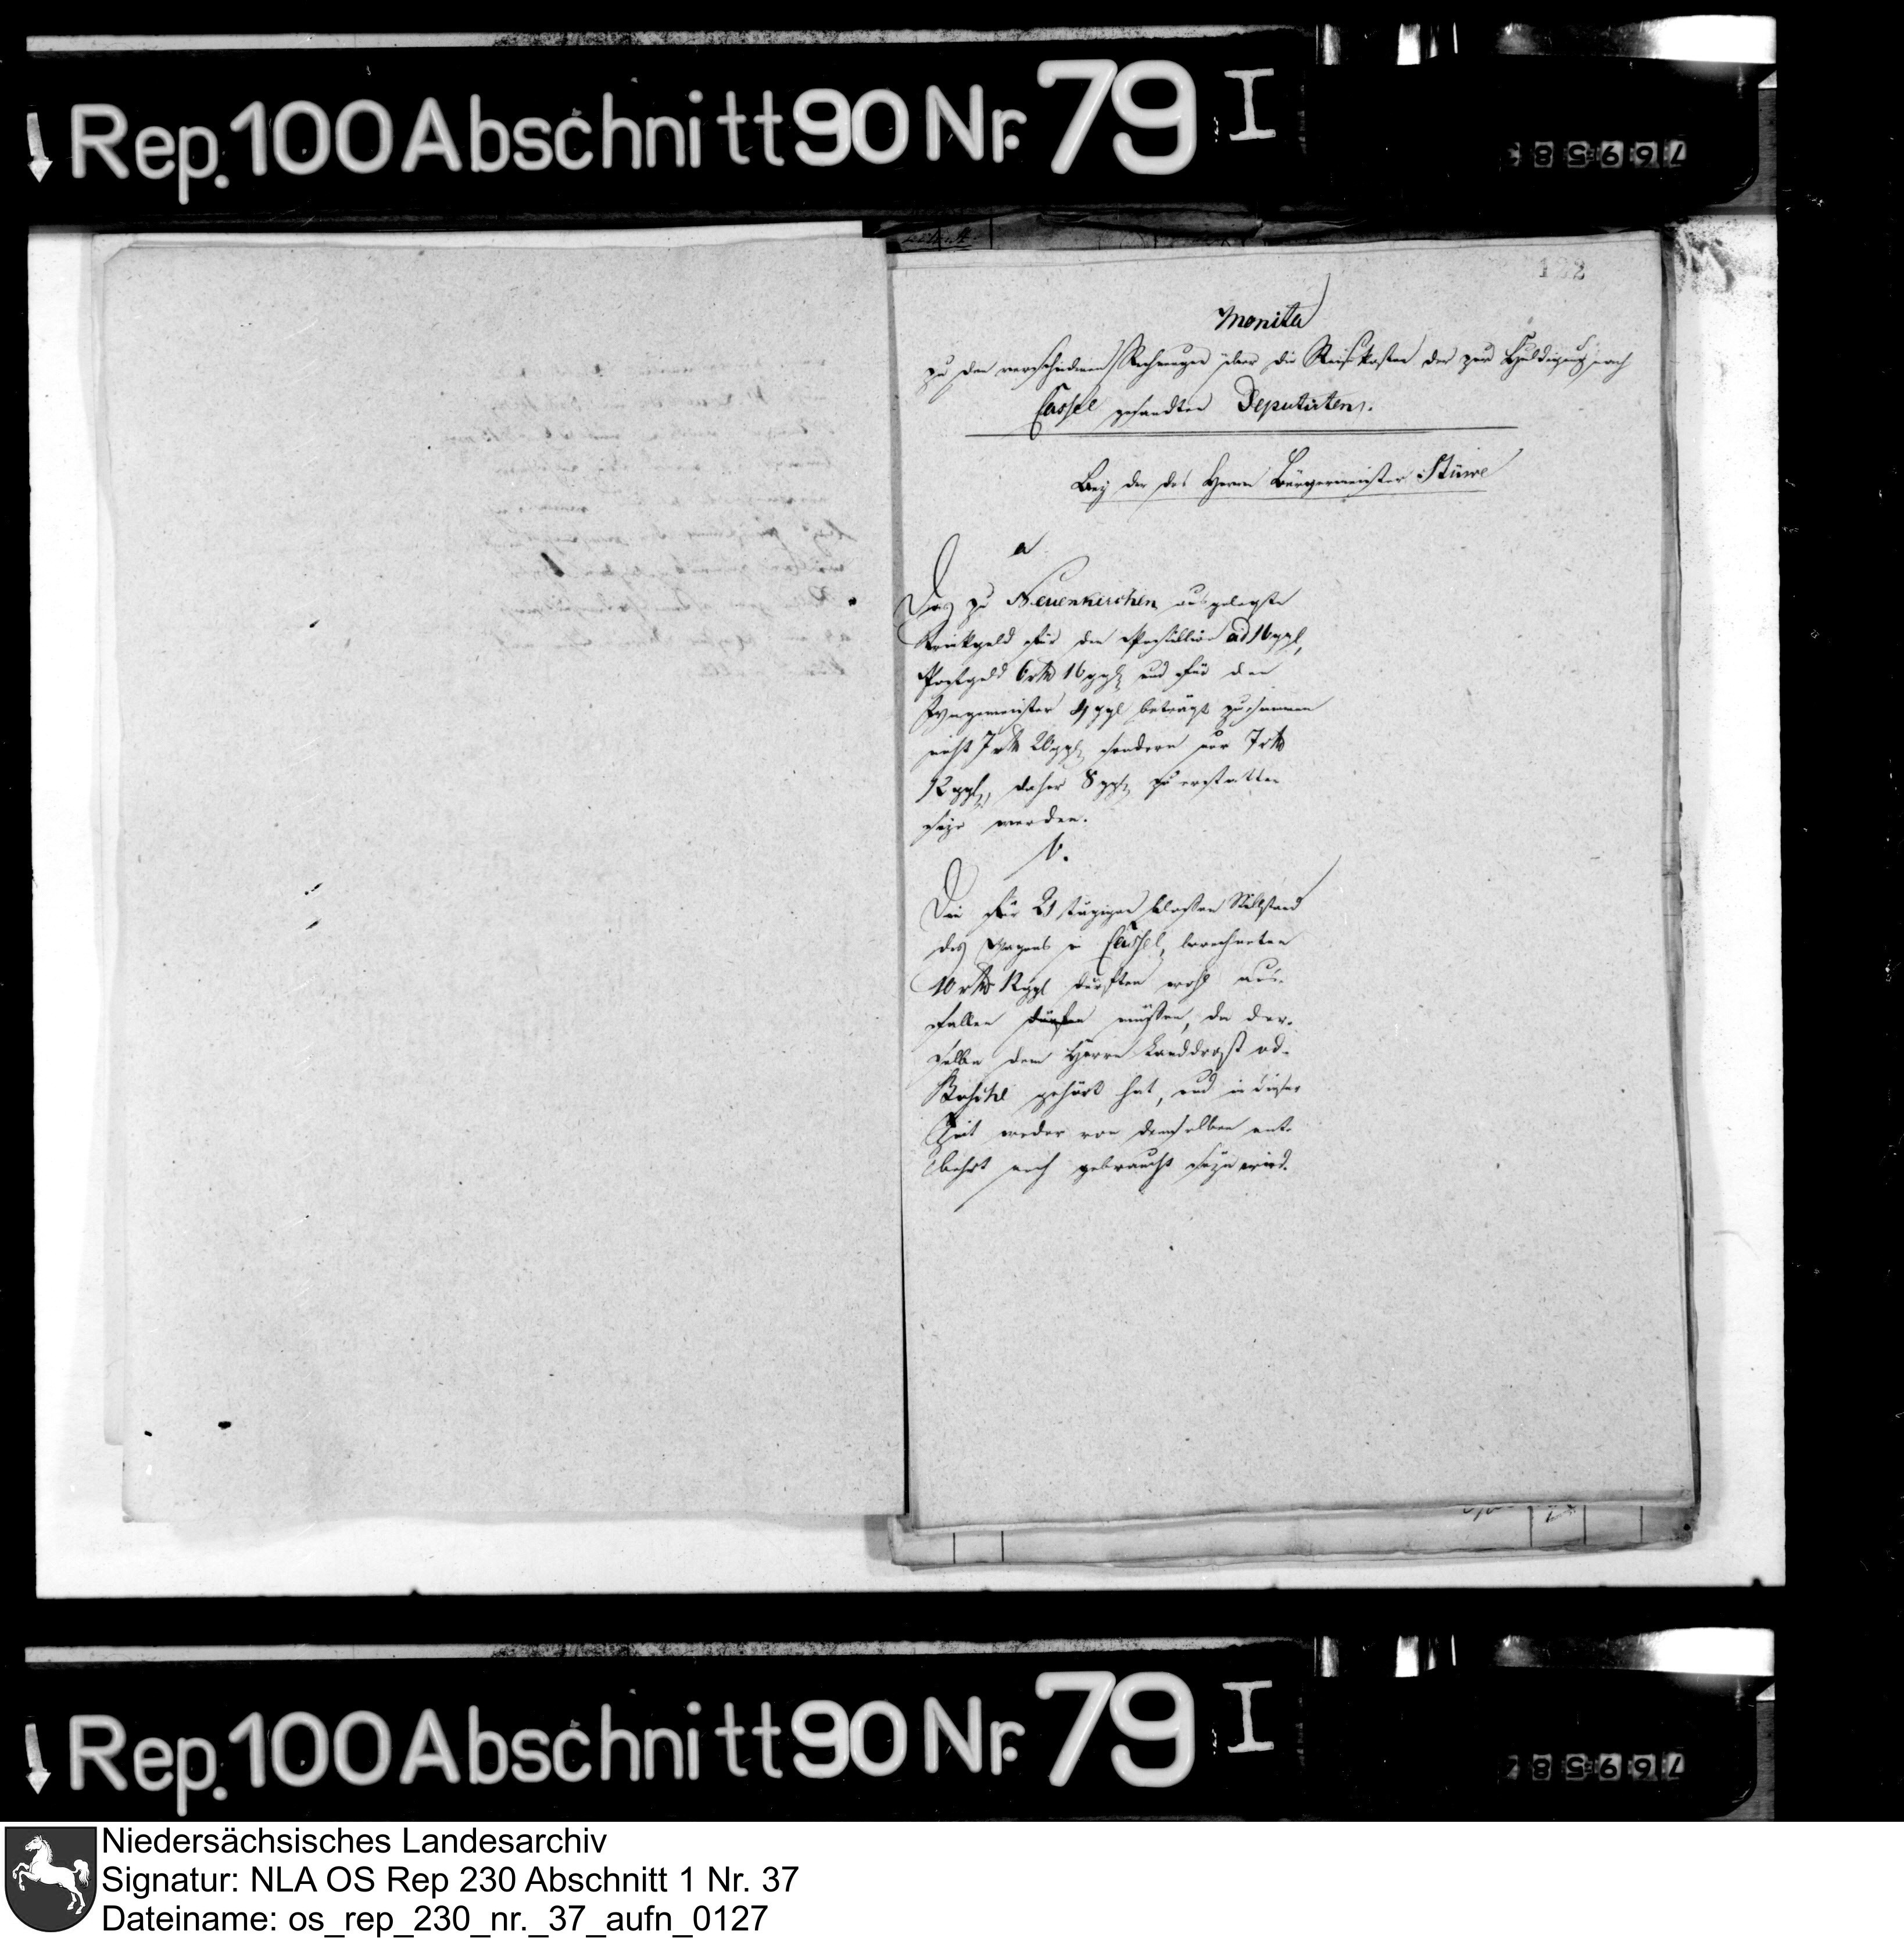 Rep. 100 Abschnitt 90 Nr. 79 I
769587
122
Monita
zu den verschiedenen Rechnungen über die Reisekosten der zur Huldigung nach
Cassel gesandten Deputirten.
Bey der des Herrn Bürgermeister Stüwe
a
Das zu Neuenkirchen ausgelegte
Trinkgeld für den Postillion ad 16 ggl,
Postgeld 6 rth 16 ggl und für den
Wagenmeister 4 ggl beträgt zusammen
nicht 7 rth 20 ggl sondern nur 7 rth
12 ggl, daher 8 ggl zu erstatten
seyn werden.
b.
Die für 21 tägigen blossen Stillstand
des Wagens in Cassel, berechneten
10 rth 12 ggl dürften wohl aus-
fallen müssen, da der-
selbe dem Herrn Landdrost
gehört hat, und in dieser
Zeit weder von demselben ent-
behrt noch gebraucht seyn wird.
Rep. 100 Abschnitt 90 Nr. 79 I
769587
Niedersächsisches Landesarchiv
Signatur: NLA OS Rep 230 Abschnitt 1 Nr. 37
Dateiname: os_rep_230_nr._37_aufn_0127